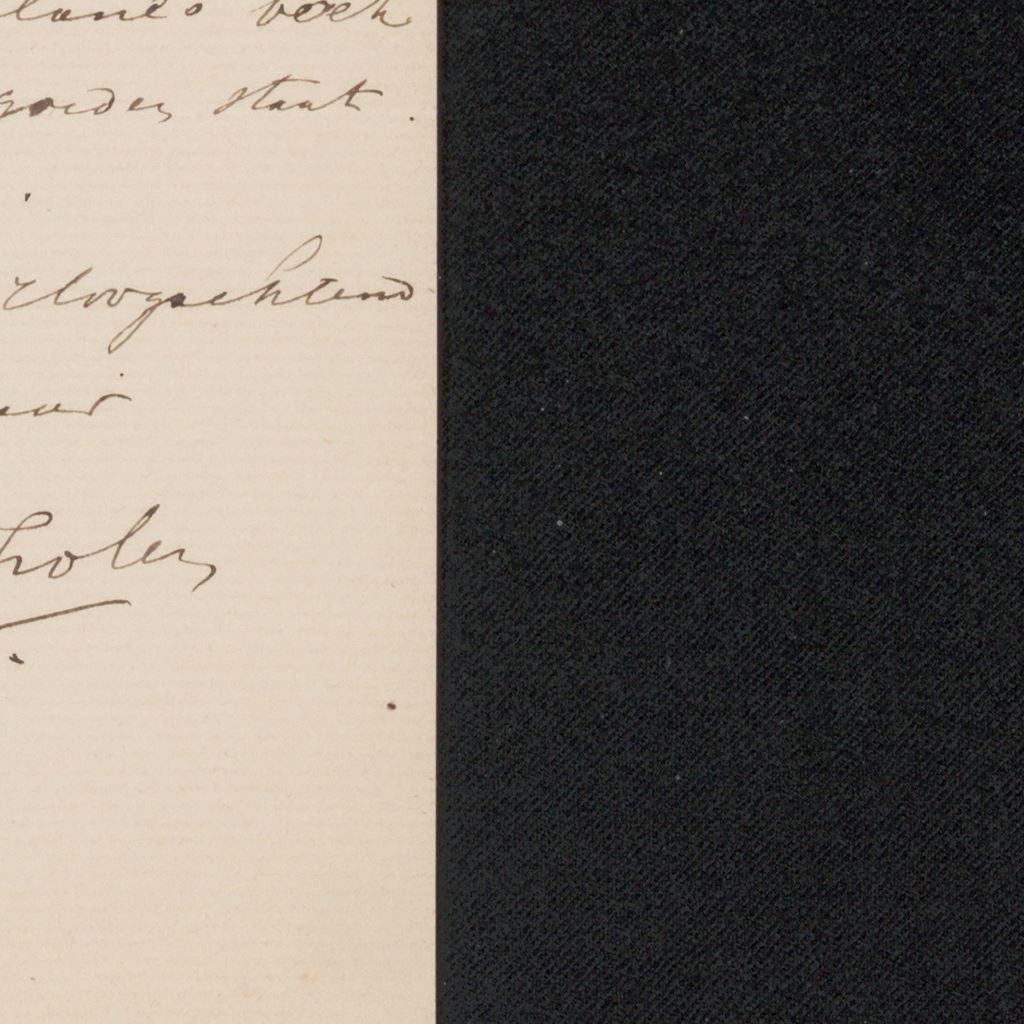 lands boek
goeden staat.
Hoogachtend
Tholen